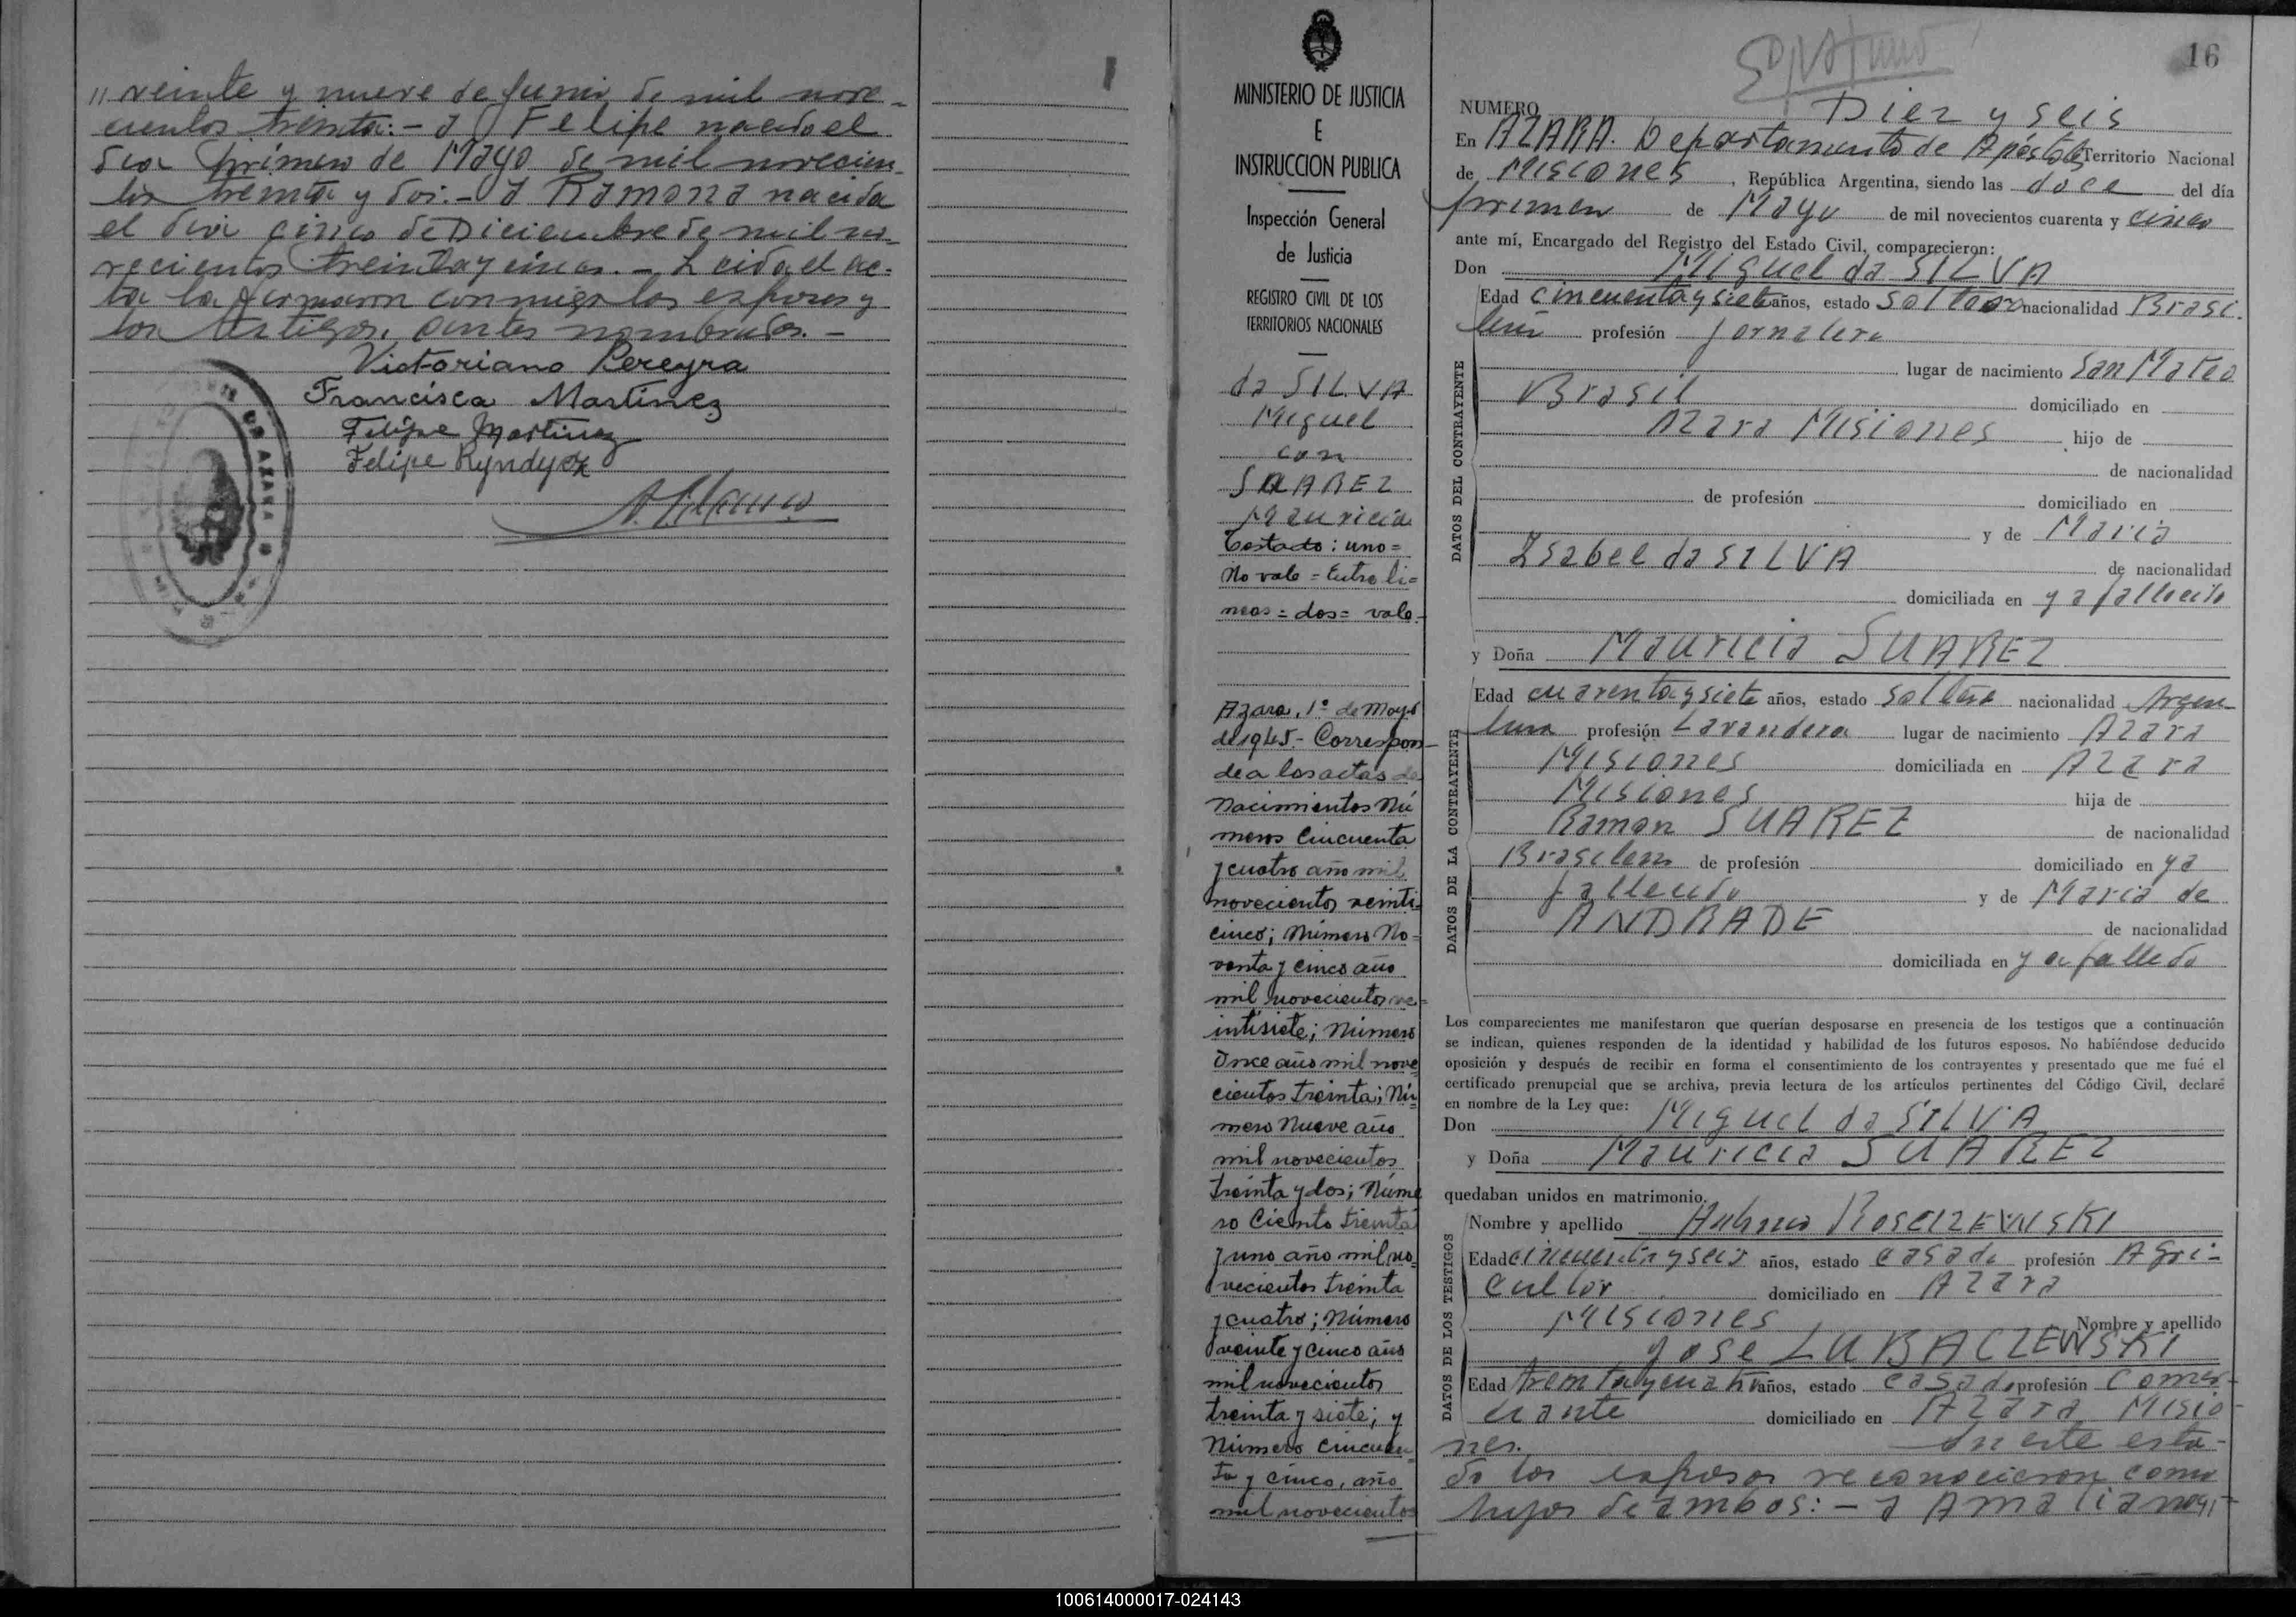 " veinte y nueve de Junio de mil nove-
cientos treinta:- a Felipe nacido el
dia primero de Mayo de mil novecien-
tos treinta y dos:- a Ramona nacida
el dia cinco de Diciembre de mil no-
vecientos treinta y cinco.- Leida el ac-
ta la firmaron conmigo los esposos y
los testigos, antes nombrados.-
Victoriano Pereyra
Francisca Martinez
Felipe Martinez
Felipe Ryndycz
DE AZARA
MINISTERIO DE JUSTICIA
E
INSTRUCCION PUBLICA
Inspección General
de Justicia
REGISTRO CIVIL DE LOS
TERRITORIOS NACIONALES
da SILVA
Miguel
con
SUAREZ
Mauricia
Testado: uno=
No vale = Entre lí=
neas = dos = vale.
Azara, 1º de Mayo
de 1945.- Correspon-
de a las actas de
Nacimientos Nú
meros Cincuenta
y cuatro año mil
novecientos veinti=
cinco; Número No=
venta y cinco año
mil novecientos ve=
intisiete; Número
Once año mil nove
cientos treinta; Nú
mero Nueve año
mil novecientos
treinta y dos; Núme
ro Ciento treinta
y uno año mil no
vecientos treinta
y cuatro; Número
veinte y cinco año
mil novecientos
treinta y siete; y
Número cincuen
ta y cinco, año
mil novecientos
16
NUMERO Diez y seis
En AZARA. Departamento de Apóstoles Territorio Nacional
de Misiones, República Argentina, siendo las doce del día
primero de Mayo de mil novecientos cuarenta y cinco
ante mí, Encargado del Registro del Estado Civil, comparecieron:
Don Miguel da SILVA
DATOS DEL CONTRAYENTE
Edad cincuenta y siete años, estado soltero nacionalidad Brasi.
lero profesión Jornalero
lugar de nacimiento San Mateo
Brasil domiciliado en
Azara Misiones hijo de
de nacionalidad
de profesión domiciliado en
y de Maria
Isabel da SILVA de nacionalidad
domiciliada en ya fallecido
y Doña Mauricia SUAREZ
DATOS DE LA CONTRAYENTE
Edad cuarenta y siete años, estado soltera nacionalidad Argen-
tina profesión Lavandera lugar de nacimiento Azara
Misiones domiciliada en Azara
Misiones hija de
Ramon SUAREZ de nacionalidad
Brasilero de profesión domiciliado en ya
fallecido y de Maria de
ANDRADE de nacionalidad
domiciliada en ya fallecido
Los comparecientes me manifestaron que querían desposarse en presencia de los testigos que a continuación
se indican, quienes responden de la identidad y habilidad de los futuros esposos. No habiéndose deducido
oposición y después de recibir en forma el consentimiento de los contrayentes y presentado que me fué el
certificado prenupcial que se archiva, previa lectura de los artículos pertinentes del Código Civil, declaré
en nombre de la Ley que:
Don Miguel da SILVA
y Doña Mauricia SUAREZ
quedaban unidos en matrimonio.
DATOS DE LOS TESTIGOS
Nombre y apellido ROSCIZEWSKI
Edad cincuenta y seis años, estado casado profesión Agri-
cultor domiciliado en Azara
Misiones Nombre y apellido
Jose LUBACZEWSKI
Edad treinta y cuatro años, estado casado profesión Comer-
ciante domiciliado en Azara Misio-
nes. En este esta-
do los esposos reconocieron como
hijos de ambos:- a Amalia
100614000017-024143